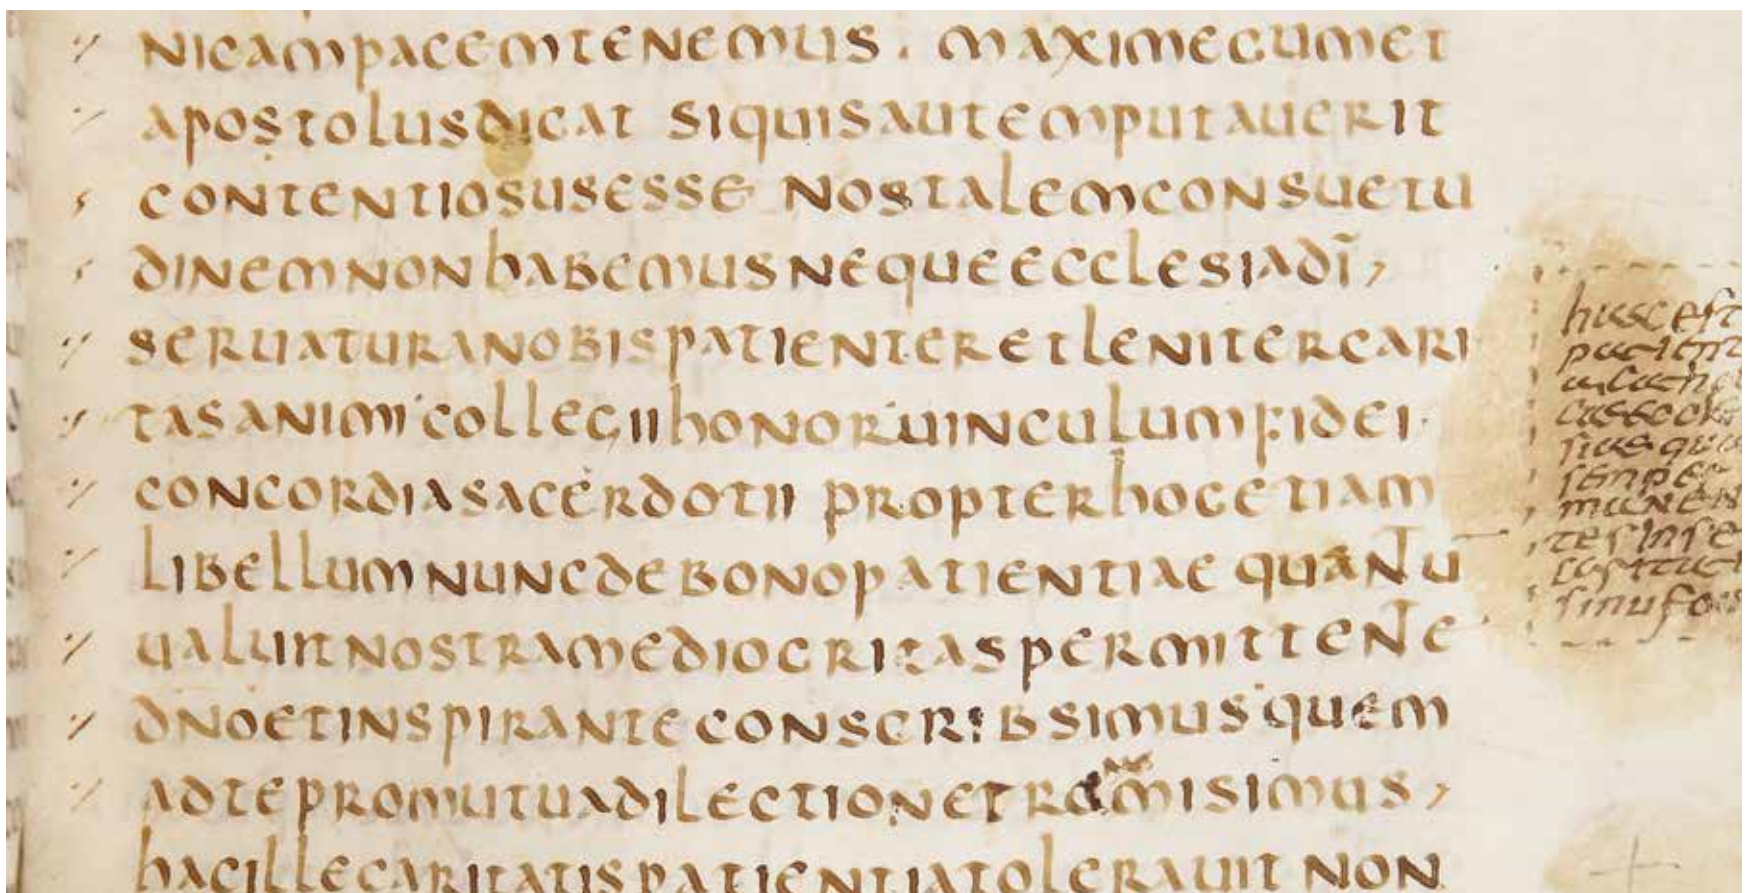 NICAMPACEMTENEMUS. MAXIMECUMET
APOSTOLUSDICAT SIQUISAUTEMPUTAUERIT
CONTENTIOSUSESSE NOSTALEMCONSUETU
DINEMNONhABEMUSNEQUEECCLESIADĪ,
SERUATURANOBISPATIENTERETLENITERCARI
TASANIMI COLLEGIIhONORUINCULUMFIDEI
CONCORDIASACERDOTII PROPTERhOCETIAM
LIBELLUMNUNCDEBONOPATIENTIAE QUANTU
UALUITNOSTRAMEDIOCRITASPERMITTENTE
DNOETINSPIRANTECONSCRIBSIMUS QUEM
ADTEPROMUTUADILECTIONE MISIMUS,
hACILLECARITATISPATIENTIATOLERAUIT NON
haec est